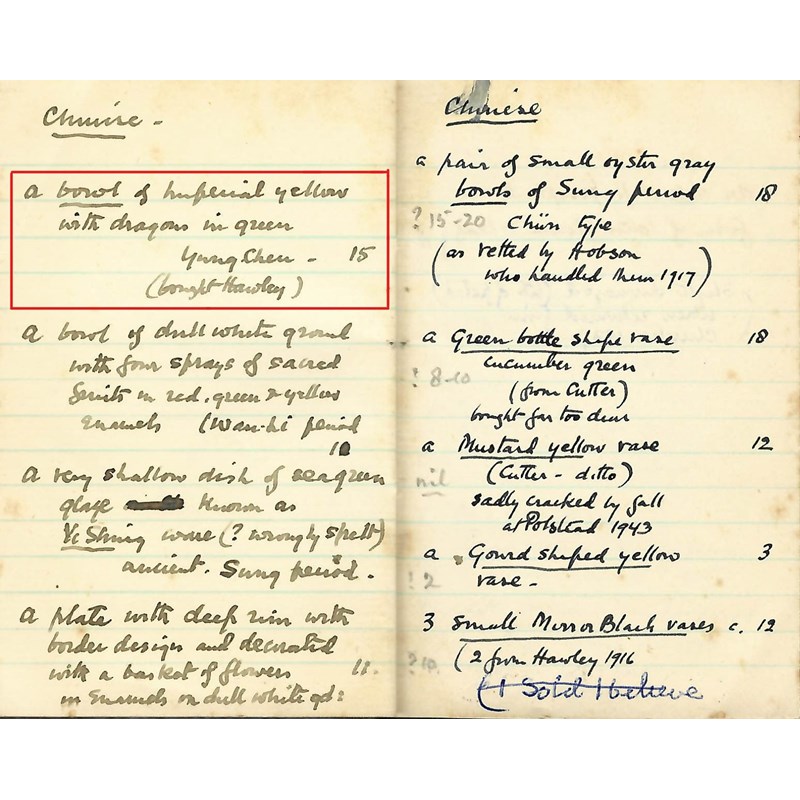 Chinese -
a bowl of Imperial yellow
with dragons in green
Yung Chen - 15
(bought Hawley)
a bowl of dull white ground
with four sprays of sacred
fruits in red, green & yellow
Enamels (Wan-li period
10
a very shallow dish of seagreen
glaze known as
Yi Shing ware (? wrongly spelt)
ancient. Sung period.
a plate with deep rim with
border designs and decorated
with a basket of flowers 11.
in Enamels on dull white gd:
Chinese
a pair of small oyster gray
bowls of Sung period 18
? 15-20 Chün type
(as vetted by Hobson
who handled them 1917)
a Green bottle shape vase 18
cucumber green
? 8-10
(from Cutter)
bought far too dear
a Mustard yellow vase 12
(Cutter - ditto)
nil
sadly cracked by fall
at Polstead 1943
a Gourd shaped yellow 3
? 2 vase -
3 Small Mirror Black vases c. 12
? 10. (2 from Hawley 1916
(1 Sold I believe